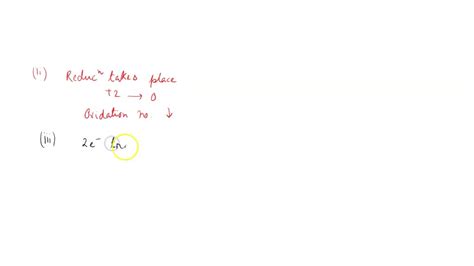 (ii) Reducⁿ takes place
+2 → 0
Oxidation no. ↓
(iii) 2e⁻